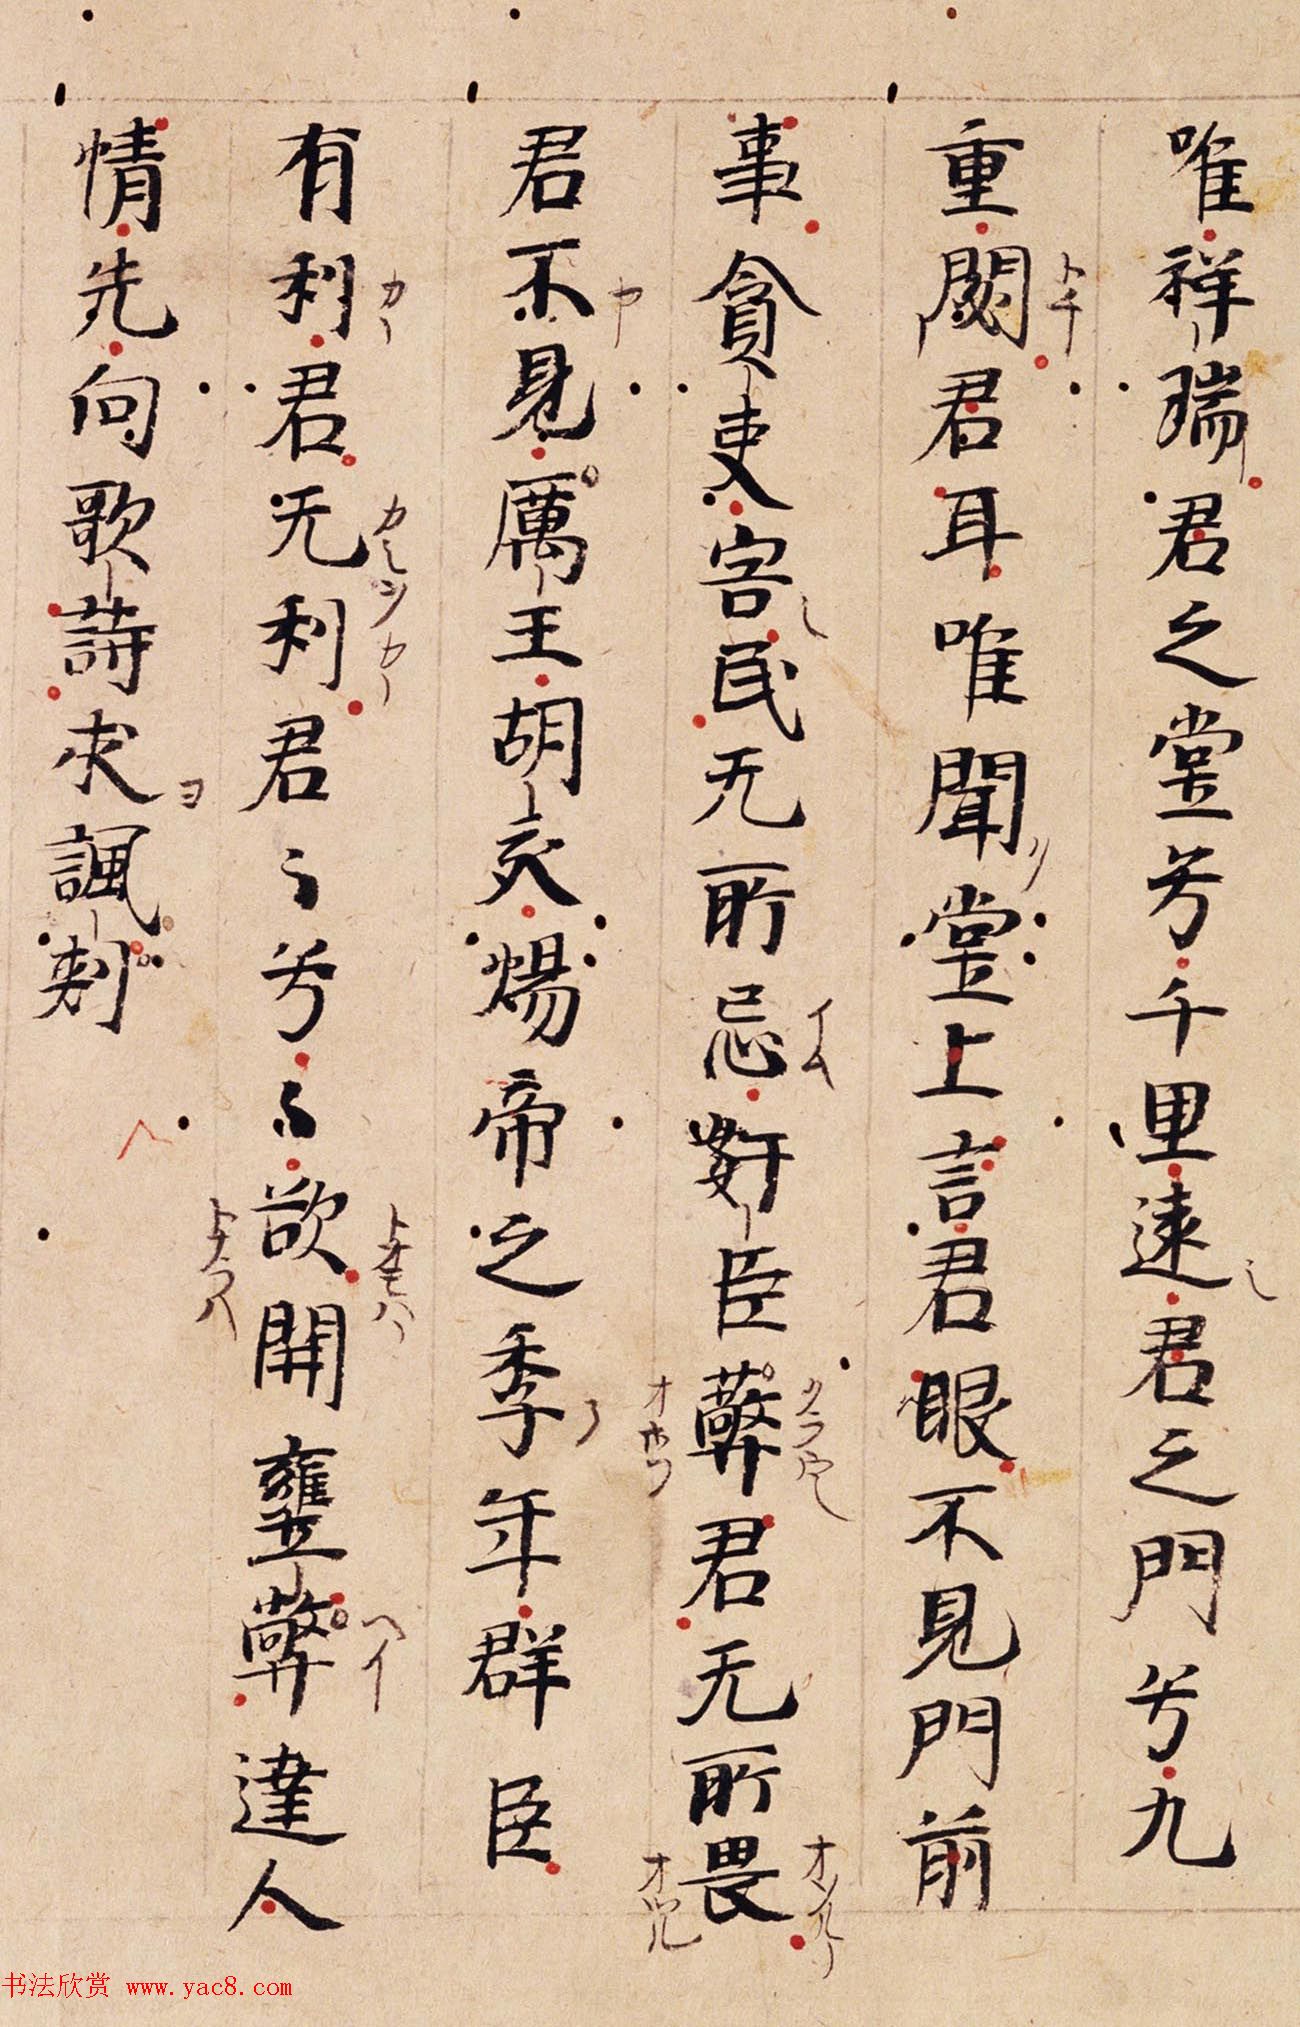 唯祥瑞君之堂兮千里遠君之門兮九
重閟君耳唯聞堂上言君眼不見門前
事貪吏害民无所忌姧臣蔽君无所畏
君不見厲王胡亥煬帝之季年群臣
有利君无利君々兮々欲開壅蔽達人
情先向歌詩求諷刺
书法欣赏 www.yac8.com